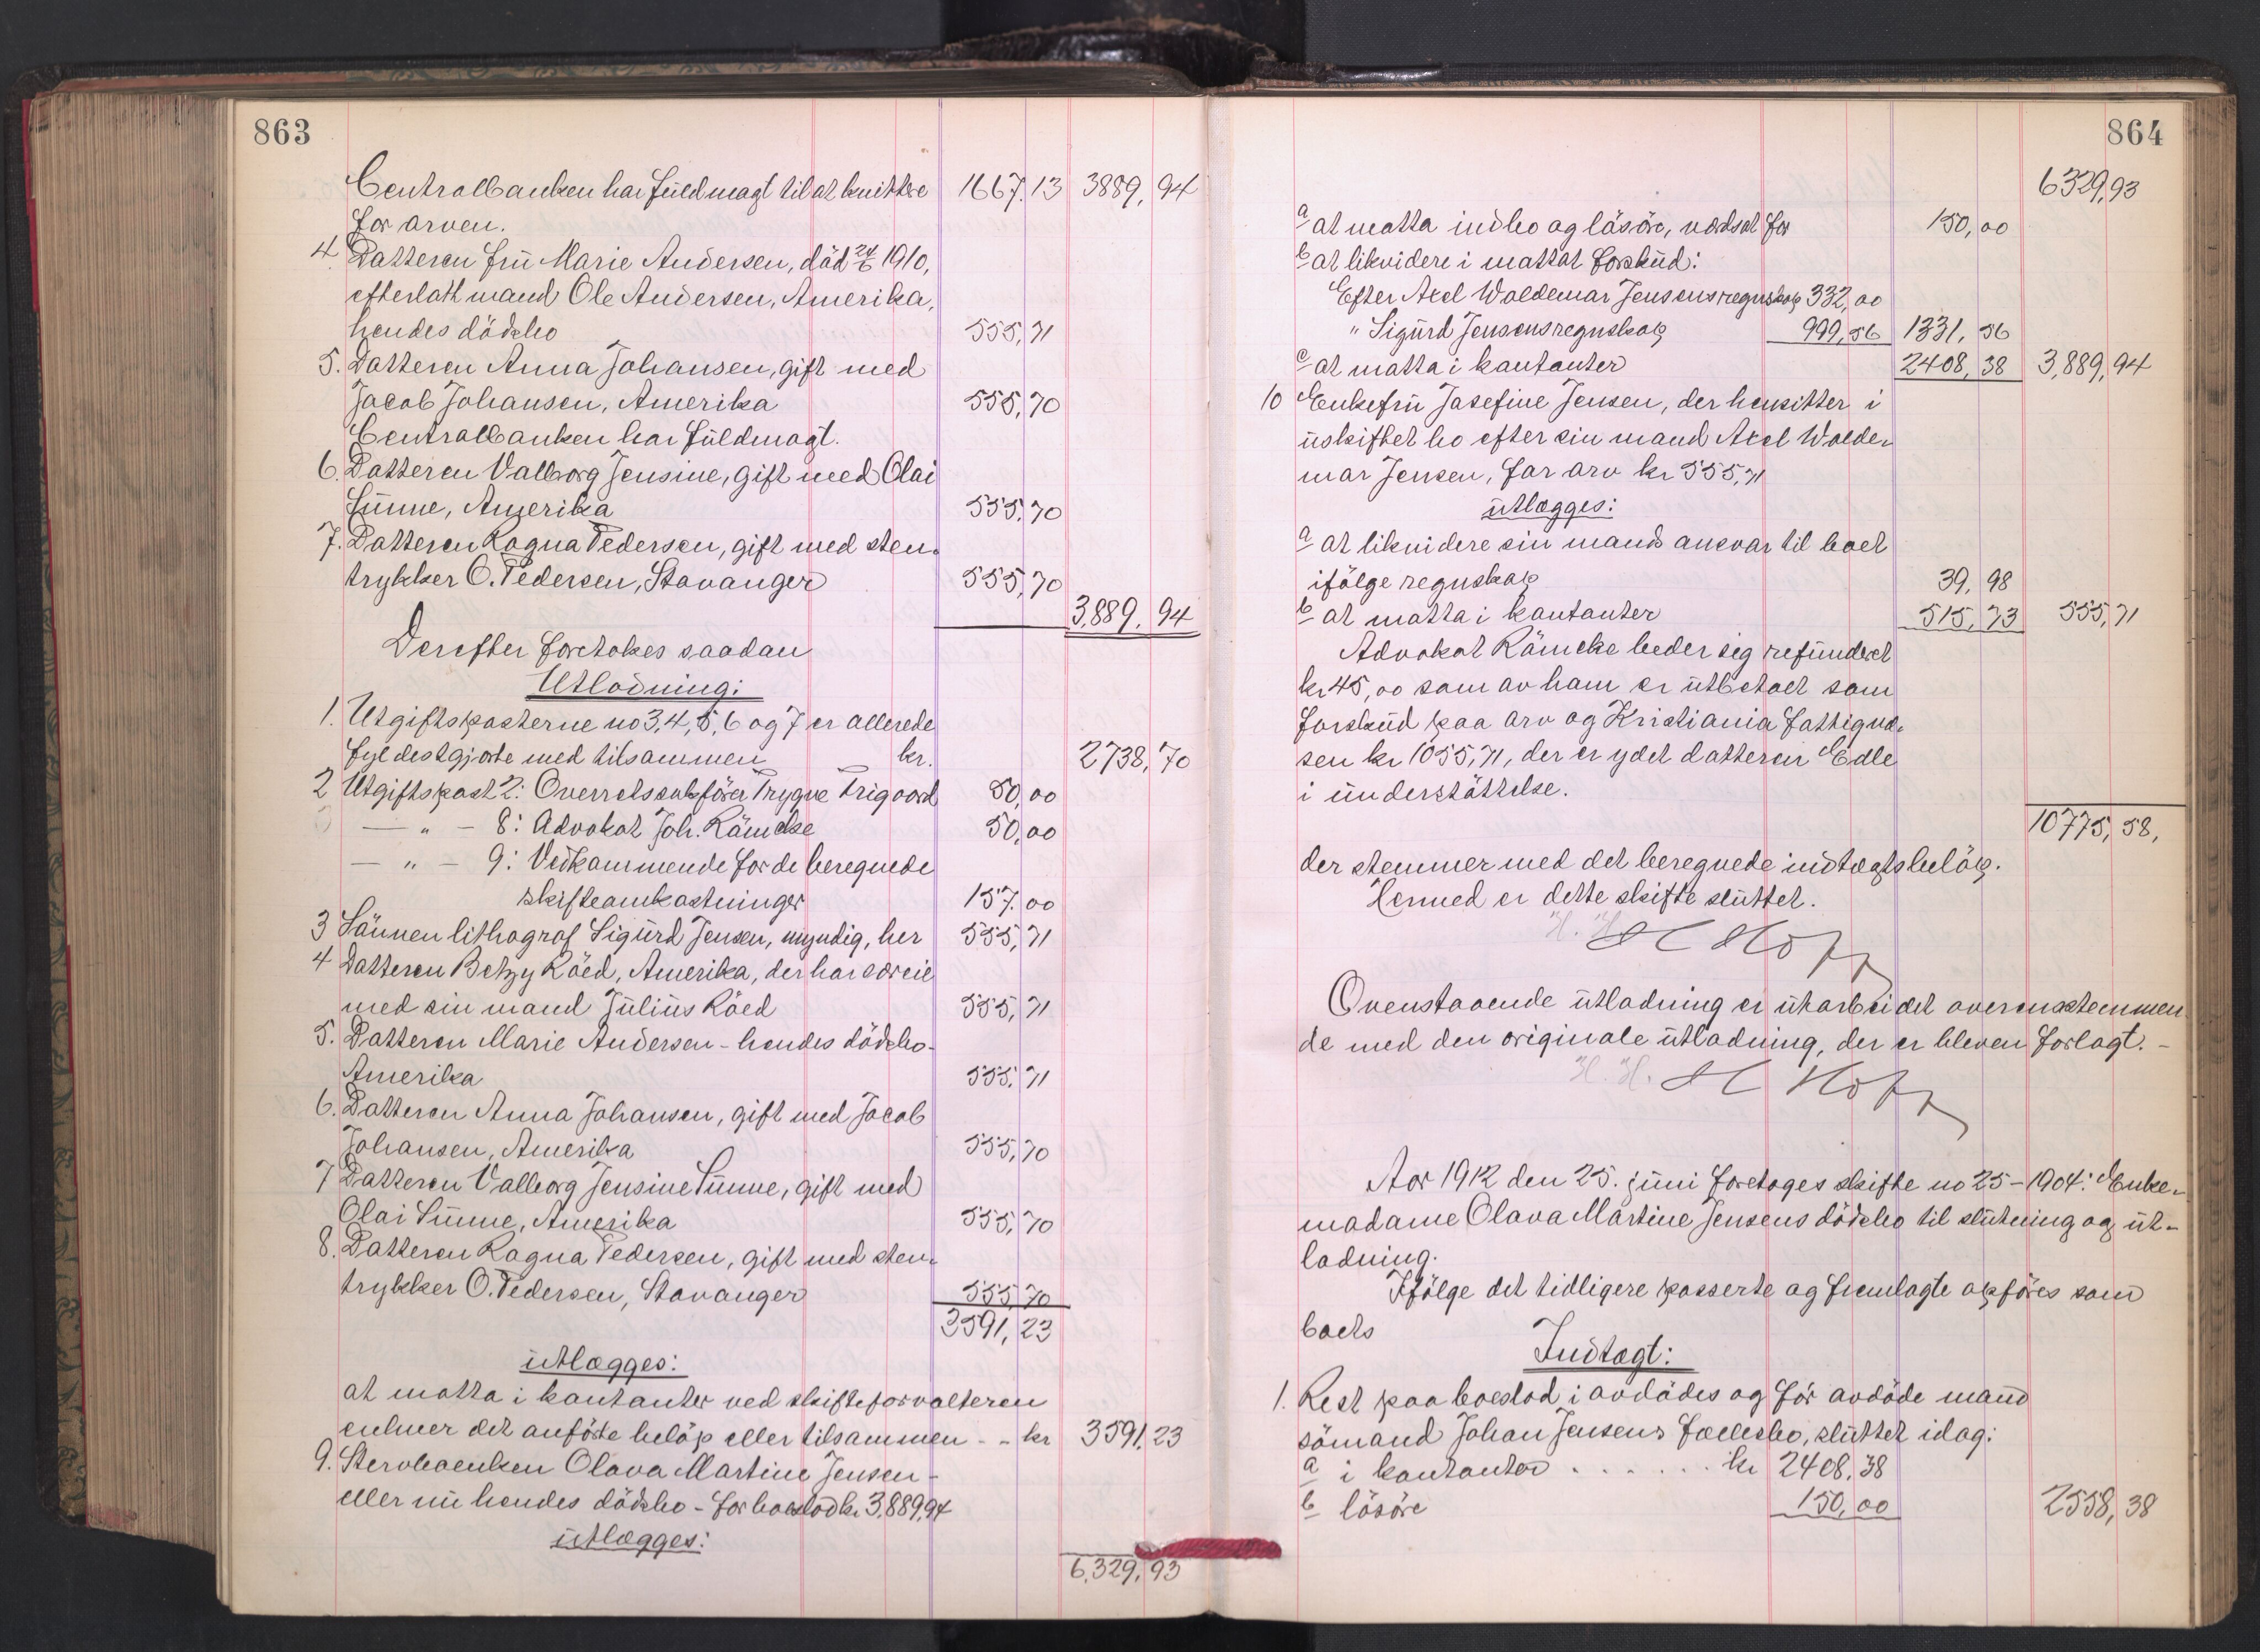 863
Centralbanken har fuldmagt til at kvittere 1667.13 3889,94
for arven.
4. Datteren fru Marie Andersen, död 24/6 1910,
efterlatt mand Ole Andersen, Amerika,
hendes dödsbo 555,71
5. Datteren Anna Johansen, gift med
Jacob Johansen, Amerika 555,70
Centralbanken har fuldmagt.
6. Datteren Valborg Jensine, gift med Olai
Sunne, Amerika 555,70
7. Datteren Ragna Pedersen, gift med sten-
trykker O. Pedersen, Stavanger 555,70
3,889,94
Derefter foretakes saadan
Utlodning:
1. Utgiftsposterne no 3, 4, 5, 6 og 7 er allerede
fyldestgjorte med tilsammen kr. 2738,70
2 Utgiftspost 2: Overretssakförer Trygve Trigaard 50,00
— " — 8: Advokat Joh. Rämcke 50,00
— " — 9: Vedkommende for de beregnede
skifteomkostninger 157,00
3 Sönnen lithograf Sigurd Jensen, myndig, her 555,71
4 Datteren Betzy Röed, Amerika, der har særeie
med sin mand Julius Röed 555,71
5. Datteren Marie Andersen - hendes dödsbo -
Amerika 555,71
6. Datteren Anna Johansen, gift med Jacob
Johansen, Amerika 555,70
7 Datteren Valborg Jensine Sunne, gift med
Olai Sunne, Amerika 555,70
8. Datteren Ragna Pedersen, gift med sten-
trykker O. Pedersen, Stavanger 555,70
3591,23
utlægges:
at motta i kontanter ved skifteforvalteren
enhver det anförte belöp eller tilsammen - - kr 3591,23
9. Stervboenken Olava Martine Jensen -
eller nu hendes dödsbo - for boeslod kr. 3,889,94
utlægges:
6,329,93
864
6329,93
a at motta indbo og lösöre, verdsat for 150,00
b at likvidere i mottat forskud:
Efter Axel Waldemar Jensens regnskap 332,00
" Sigurd Jensens regnskap 999,56 1331,56
c at motta i kontanter 2408,38 3,889,94
10 Enkefru Josefine Jensen, der hensitter i
uskiftet bo efter sin mand Axel Walde-
mar Jensen, for arv kr 555,71
utlægges:
a at likvidere sin mands ansvar til boet
ifölge regnskap 39,98
b at motta i kontanter 515,73 555,71
Advokat Rämcke beder sig refunderet
kr 45,00 som av ham er utbetalt som
forskud paa arv og Kristiania fattigvæ-
sen kr 1055,71, der er ydet datteren Edle
i understöttelse.
10775,58,
der stemmer med det beregnede indtægtsbelöp.
Hermed er dette skifte sluttet.
Ovenstaaende utlodning er utarbeidet overensstemmen
de med den originale utlodning, der er bleven forlagt. -
Aar 1912 den 25. juni foretages skifte no 25 - 1904: Enke-
madame Olava Martine Jensens dödsbo til slutning og ut-
lodning.
Ifölge det tidligere passerte og fremlagte opföres som
boets
Indtægt:
1. Rest paa boeslod i avdödes og för avdöde mand
sömand Johan Jensens fællesbo, sluttet idag:
a i kontanter . . . . . . . kr 2408,38
b lösöre 150,00 2558,38